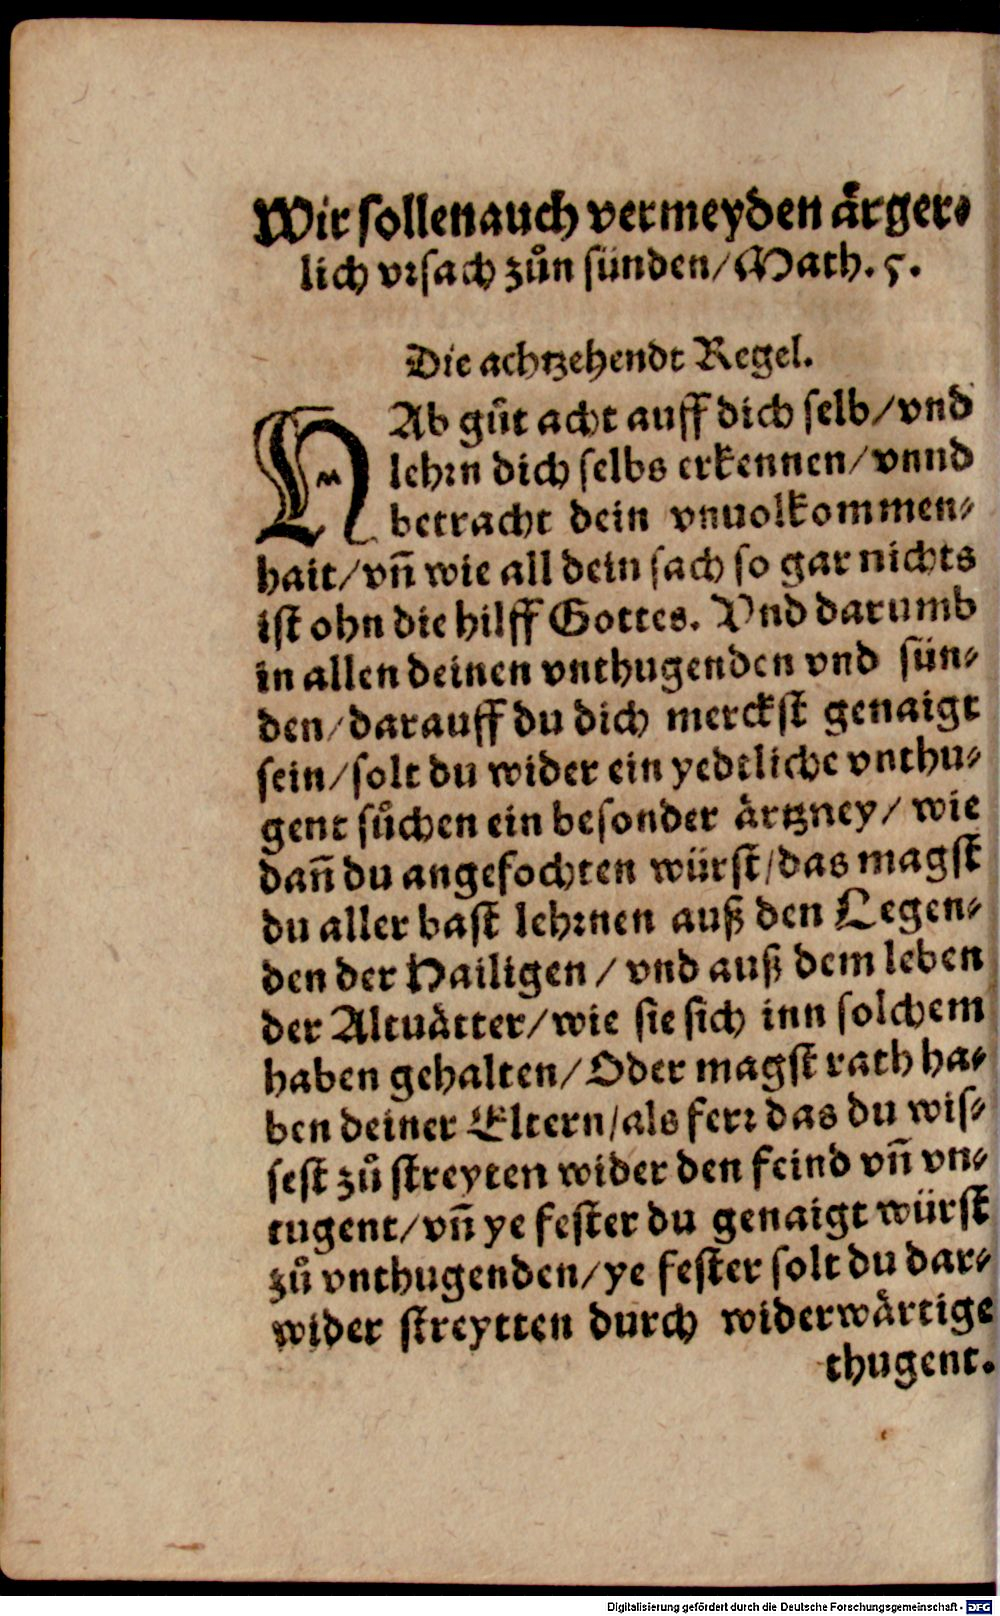 Wir sollen auch vermeyden ärger⸗
lich vrsach zůn sünden/ Math. 5.
Die achtzehendt Regel.
HAb gůt acht auff dich selb/ vnd
lehrn dich selbs erkennen/ vnnd
betracht dein vnuolkommen⸗
hait/ vn̄ wie all dein sach so gar nichts
ist ohn die hilff Gottes. Vnd darumb
in allen deinen vnthugenden vnd sün⸗
den/ darauff du dich merckst genaigt
sein/ solt du wider ein yedtliche vnthu⸗
gent sůchen ein besonder ärtzney/ wie
dan̄ du angefochten würst/ das magst
du aller bast lehrnen auß den Legen⸗
den der Hailigen/ vnd auß dem leben
der Altuätter/ wie sie sich inn solchem
haben gehalten/ Oder magst rath ha⸗
ben deiner Eltern/ als ferr das du wis⸗
sest zů streyten wider den feind vn̄ vn⸗
tugent/ vn̄ ye fester du genaigt würst
zů vnthugenden/ ye fester solt du dar⸗
wider streytten durch widerwärtige
thugent.
Digitalisierung gefördert durch die Deutsche Forschungsgemeinschaft - DFG